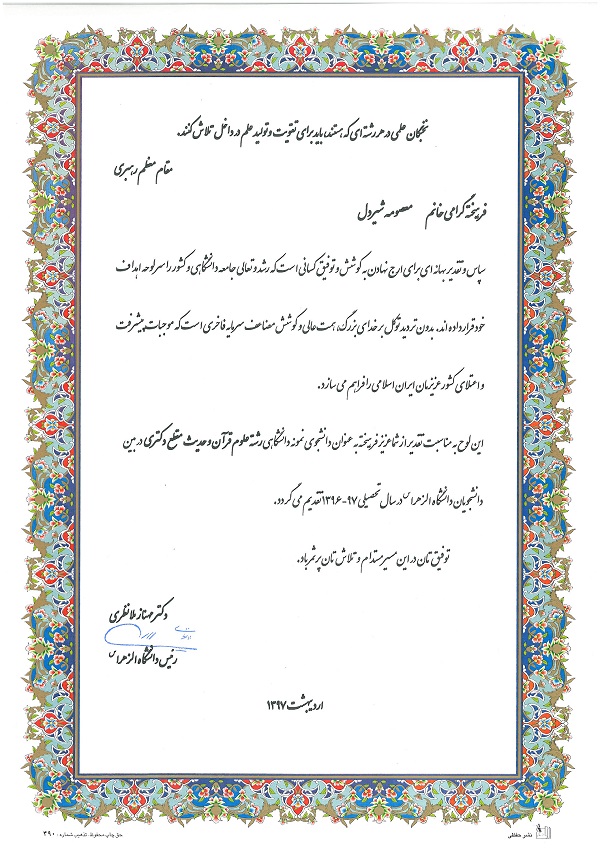 نخبگان علمی در هر رشته ای که هستند، باید برای تقویت و تولید علم در داخل تلاش کنند.
مقام معظم رهبری
فرهیخته گرامی خانم معصومه شیردل
سپاس و تقدیر بهانه ای برای ارج نهادن به کوشش و توفیق کسانی است که رشد و تعالی جامعه دانشگاهی و کشور را سرلوحه اهداف
خود قرار داده اند. بدون تردید توکل بر خدای بزرگ، همت عالی و کوشش مضاعف سرمایه فاخری است که موجبات پیشرفت
و اعتلای کشور عزیزمان ایران اسلامی را فراهم می سازد.
این لوح به مناسبت تقدیر از شما عزیز فرهیخته به عنوان دانشجوی نمونه دانشگاهی رشته علوم قرآن و حدیث مقطع دکتری در بین
دانشجویان دانشگاه الزهرا(س) در سال تحصیلی ۹۷-۱۳۹۶ تقدیم می گردد.
توفیق تان در این مسیر مستدام و تلاش تان پر ثمر باد.
دکتر مهناز ملانظری
رئیس دانشگاه الزهرا(س)
اردیبهشت ۱۳۹۷
نشر حفظی
حق چاپ محفوظ. تذهیب شماره ۳۹۰